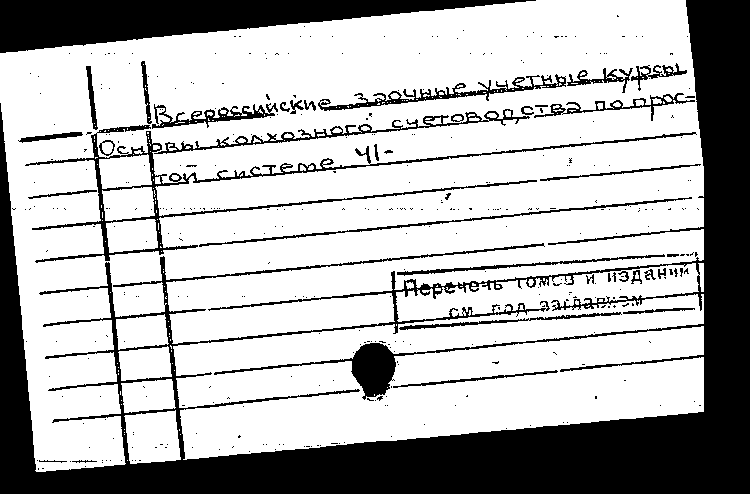 Всероссийские заочные учетные курсы
Основы колхозного счетоводства по прос-
той системе. Ч1-
Перечень томов и изданий
см. под заглавием